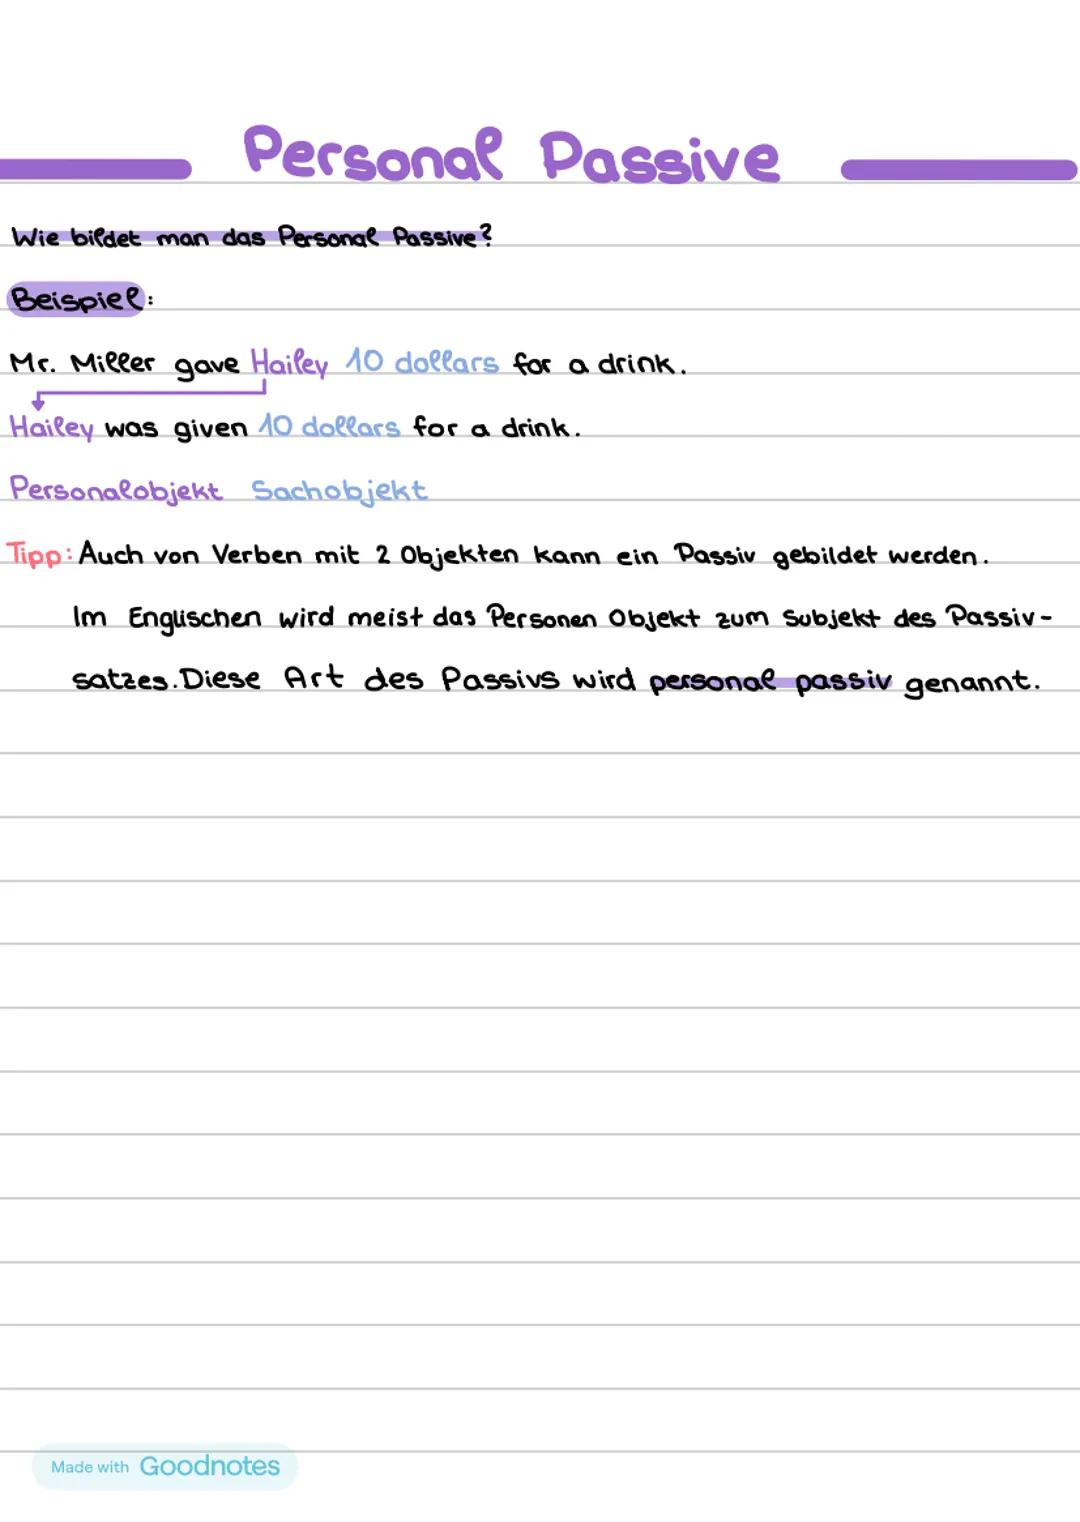 Personal Passive
Wie bildet man das Personal Passive?
Beispiel:
Mr. Miller gave Hailey 10 dollars for a drink.
Hailey was given 10 dollars for a drink.
Personalobjekt Sachobjekt
Tipp: Auch von Verben mit 2 Objekten kann ein Passiv gebildet werden.
Im Englischen wird meist das Personen Objekt zum Subjekt des Passiv-
satzes. Diese Art des Passivs wird personal passiv genannt.
Made with Goodnotes